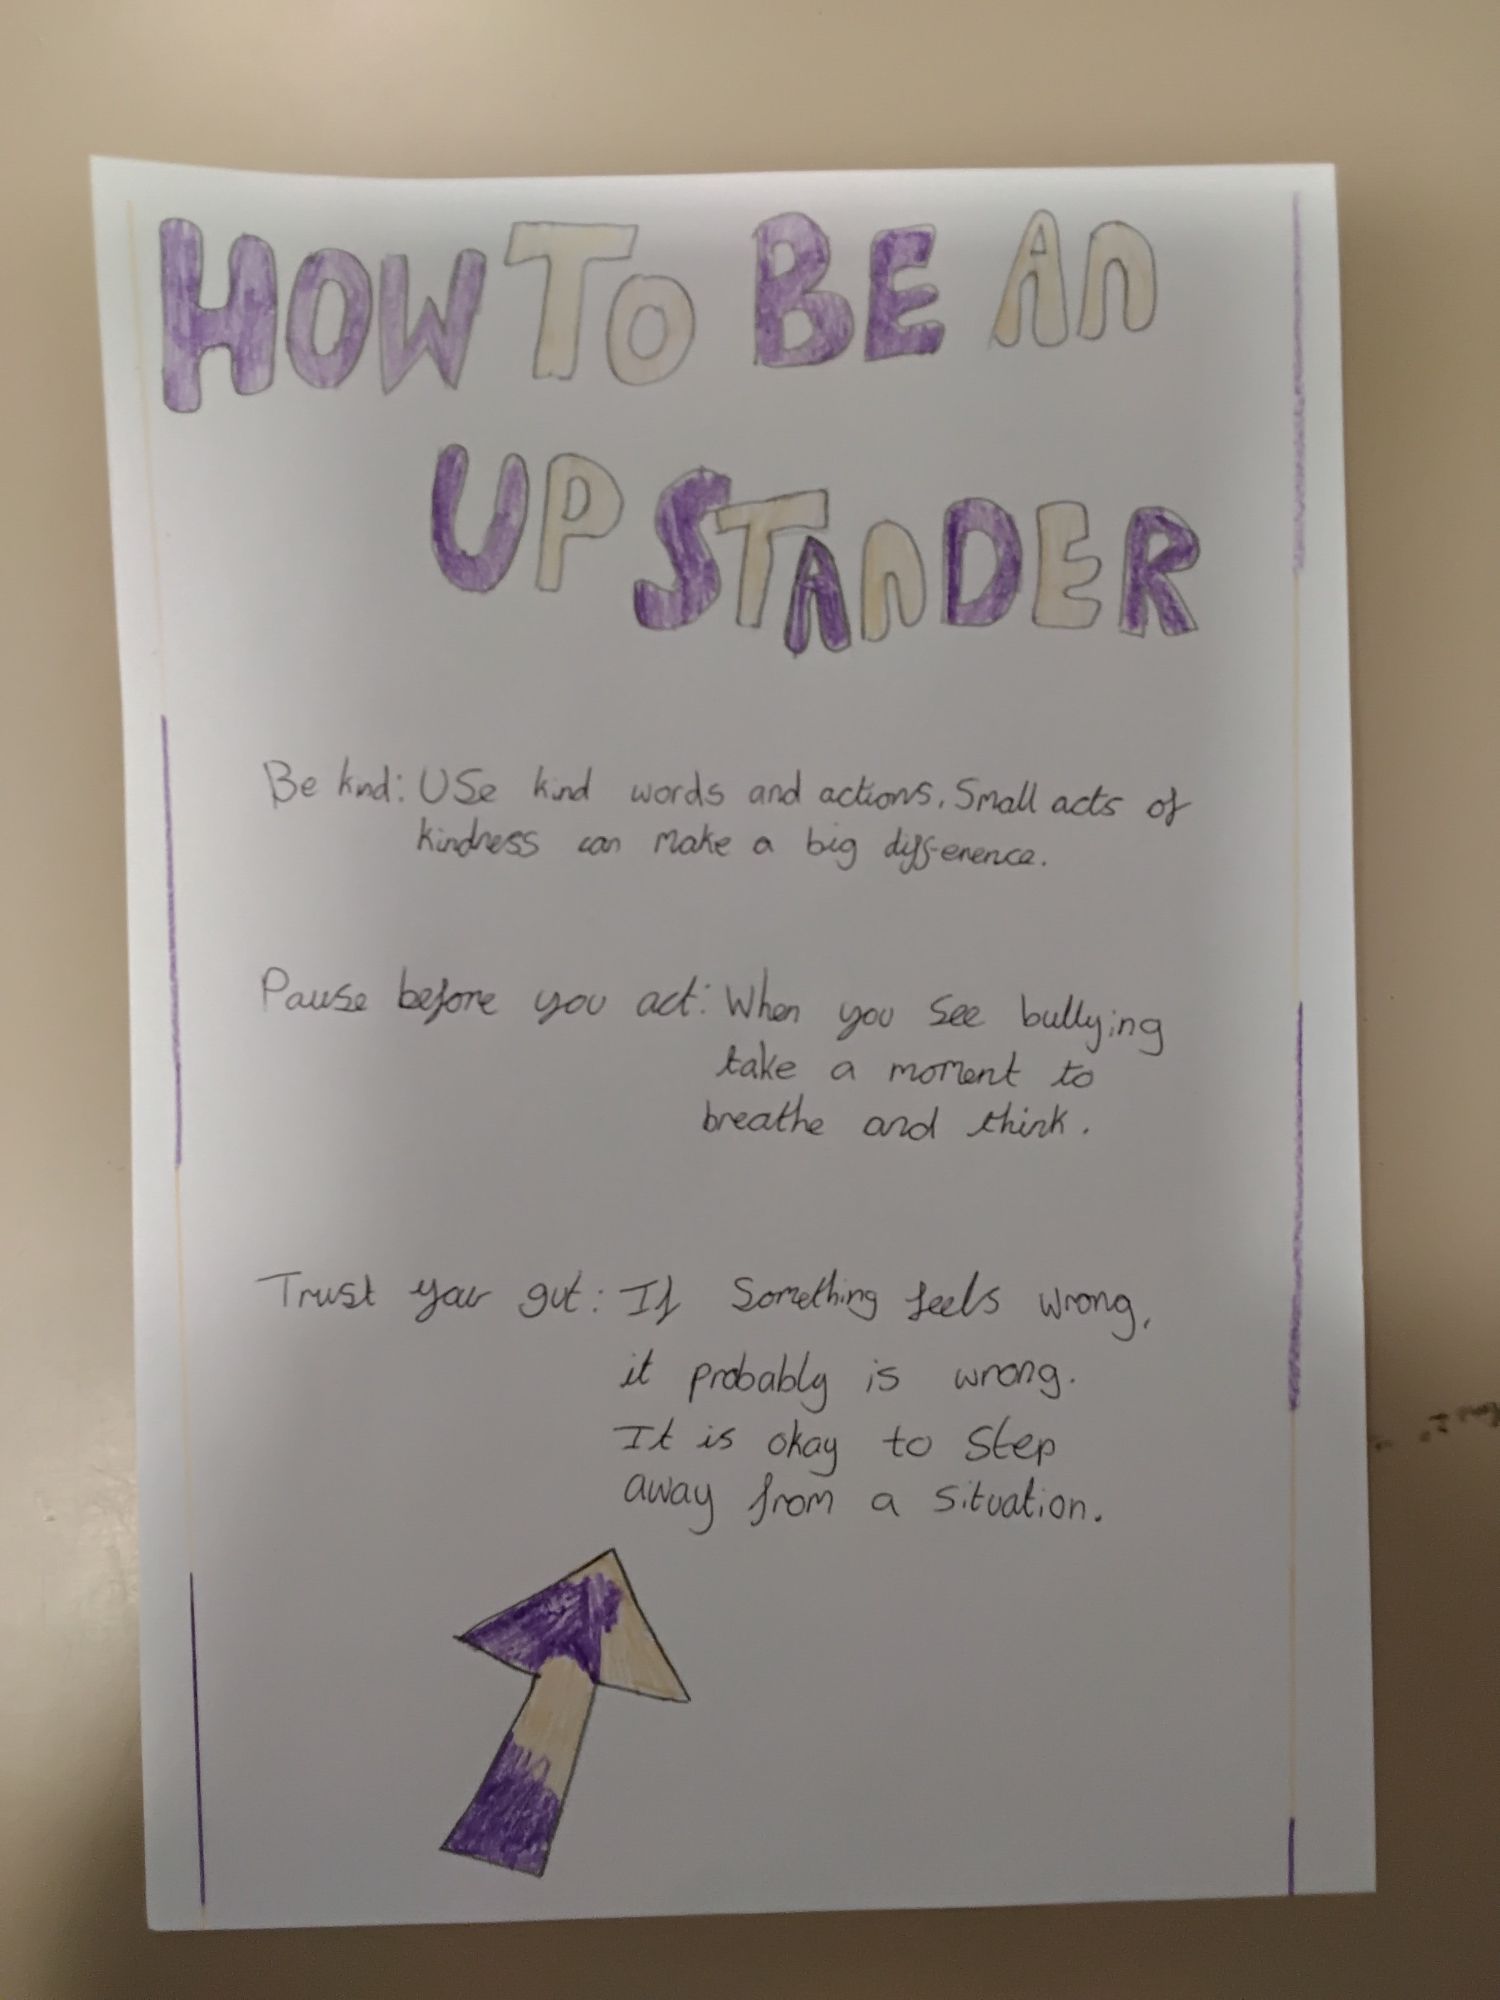 HOW TO BE AN
UPSTANDER
Be kind: Use kind words and actions. Small acts of
kindness can make a big difference.
Pause before you act: When you see bullying
take a moment to
breathe and think.
Trust your gut: If Something feels wrong,
it probably is wrong.
It is okay to step
away from a situation.